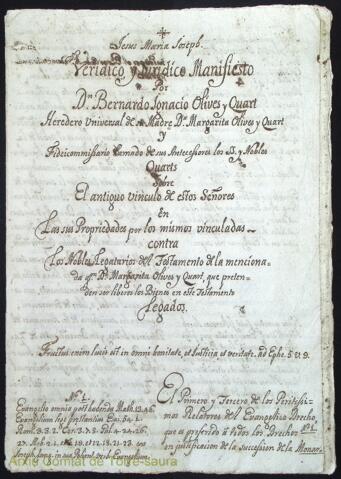 Jesus Maria Joseph.
Veridico y Juridico Manifiesto
Por
Dn. Bernardo Ignacio Olives y Quart
Heredero Universal de su Madre Da. Margarita Olives y Quart
y
Fideicommissario llamado de sus Antecessores los SS. y Nobles
Quarts
Sobre
El antiguo vinculo de estos Señores
en
Las sus Propriedades por los mismos vinculadas
contra
Los Nobles Legatarios del Testamento de la menciona-
da Da. Margarita Olives y Quart, que preten-
den ser libres los Bienes en este Testamento
Legados.
Fructus enim lucis est in omni bonitate, et Justicia et veritate. ad Ephe. 5. v. 9.
No. 1.
Evangelio omnia posthabenda Math. 13. 46.
Evangelium
El Primero y Tercero de los Peritissi-
mos Relatores del Evangelico Drecho,
que es preferido à todos los Drechos No. 1.
en justificacion de la succession de la Monar-
Arxiu Comtat de Torre-saura